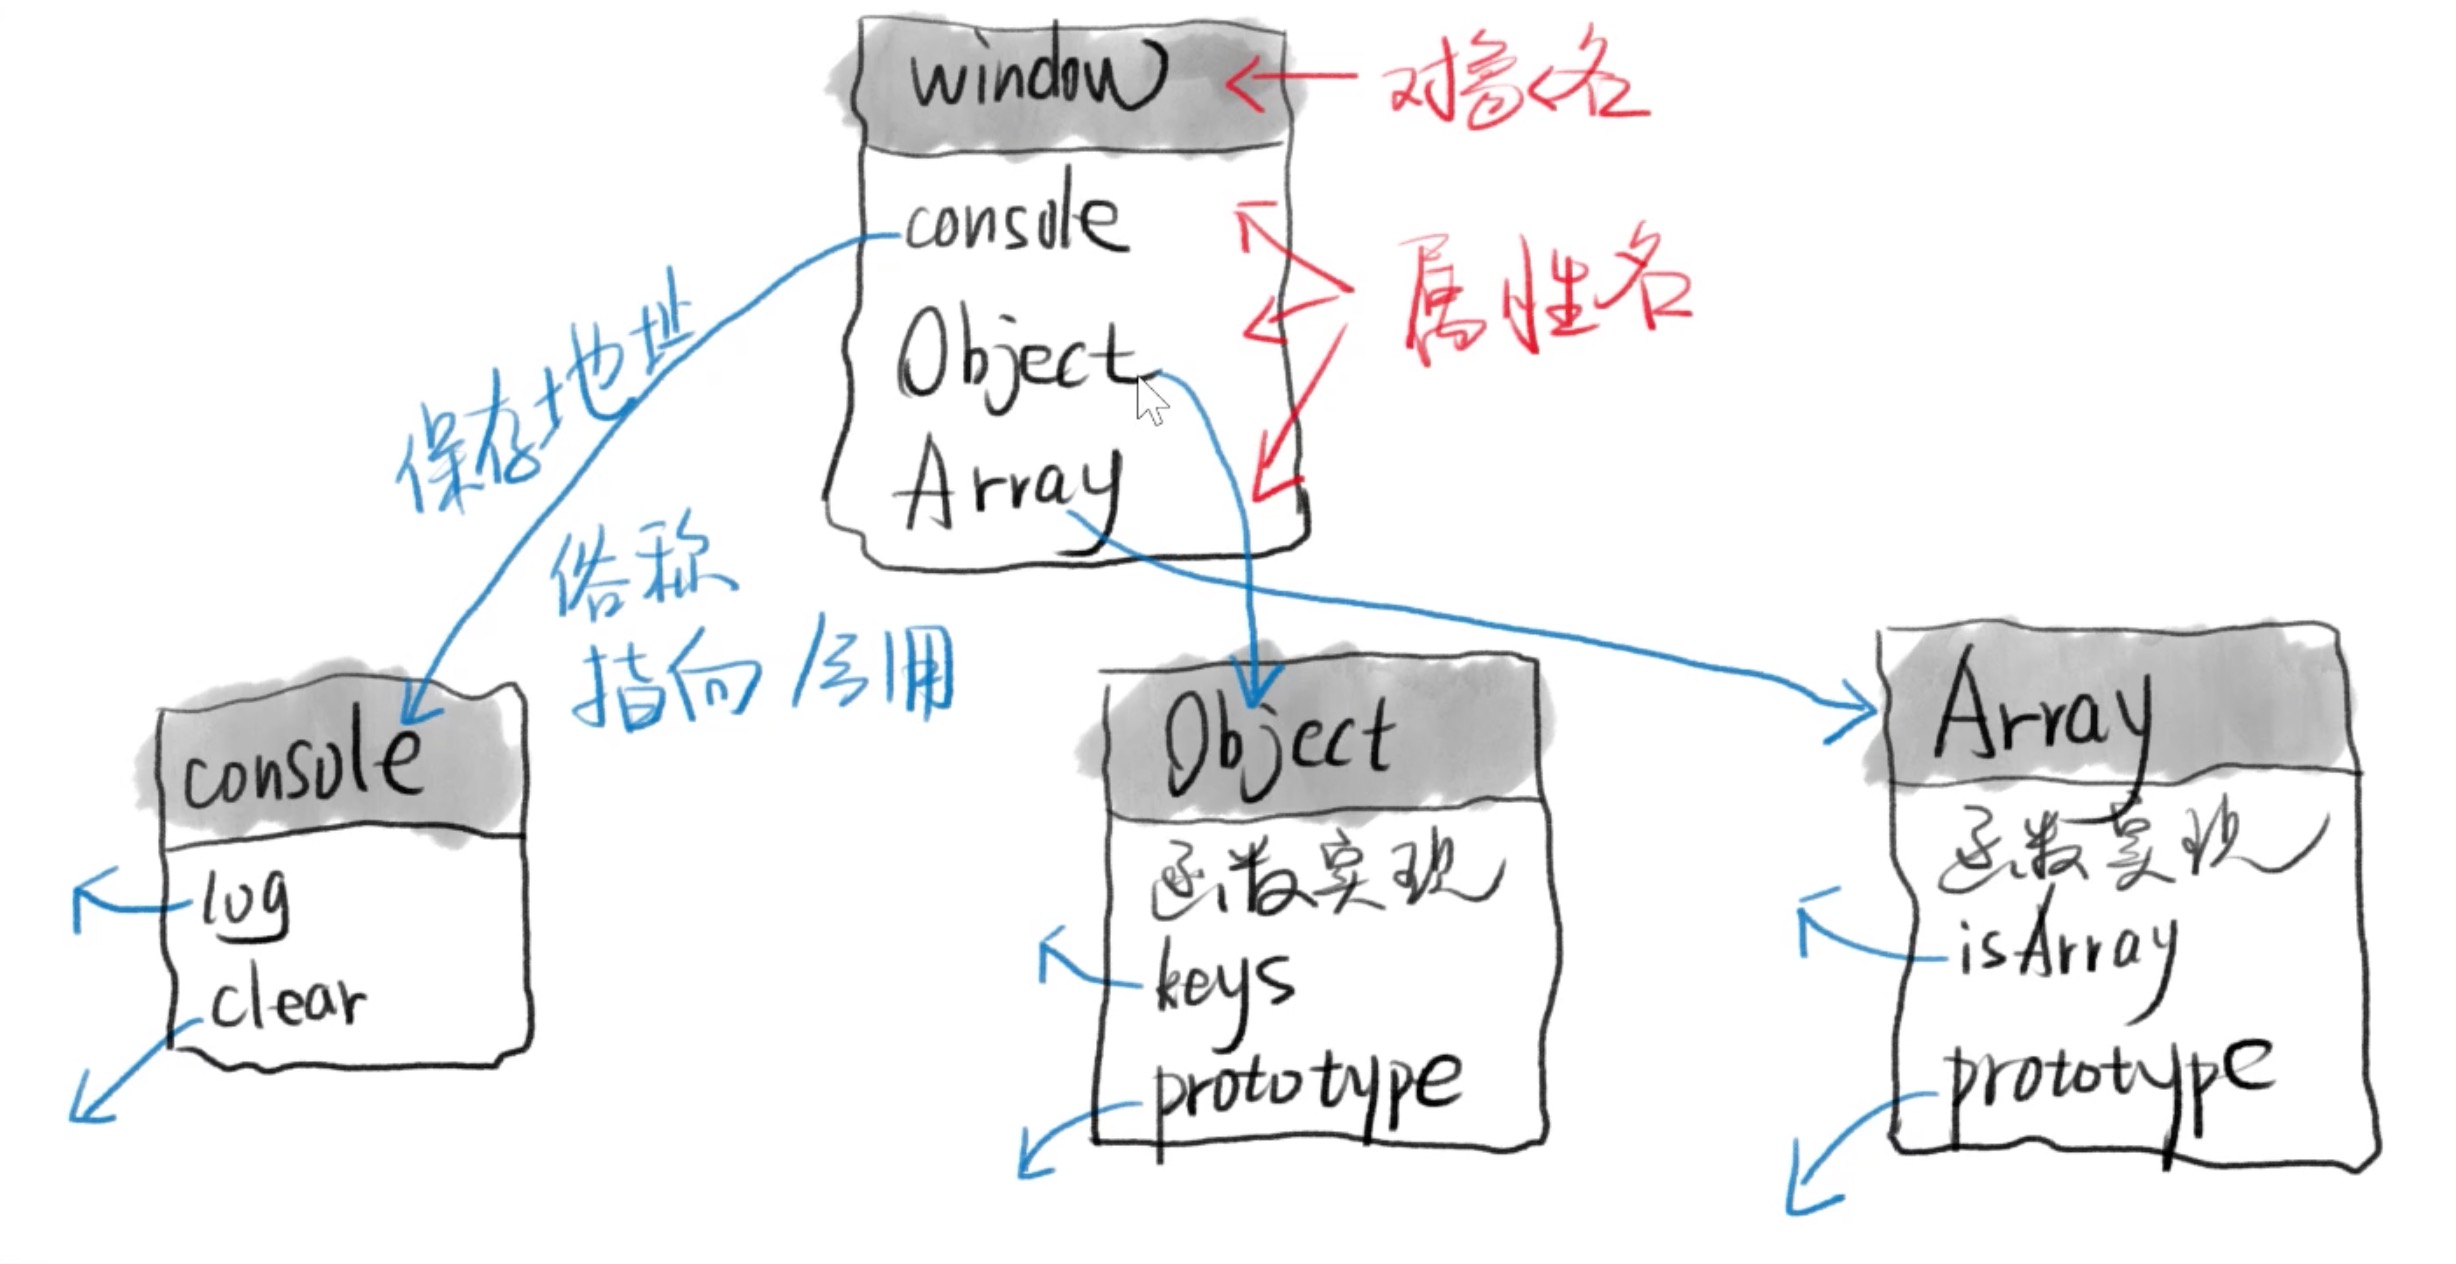 window
对象名
console
属性名
Object
Array
保存地址
俗称
指向 引用
console
log
clear
Object
函数实现
keys
prototype
Array
函数实现
isArray
prototype